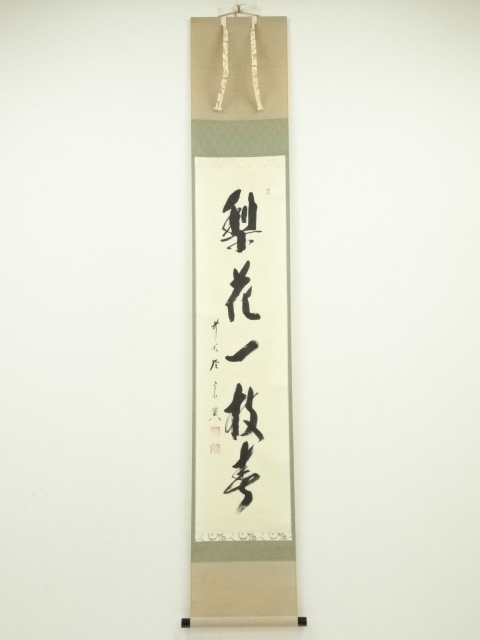 梨花一枝春